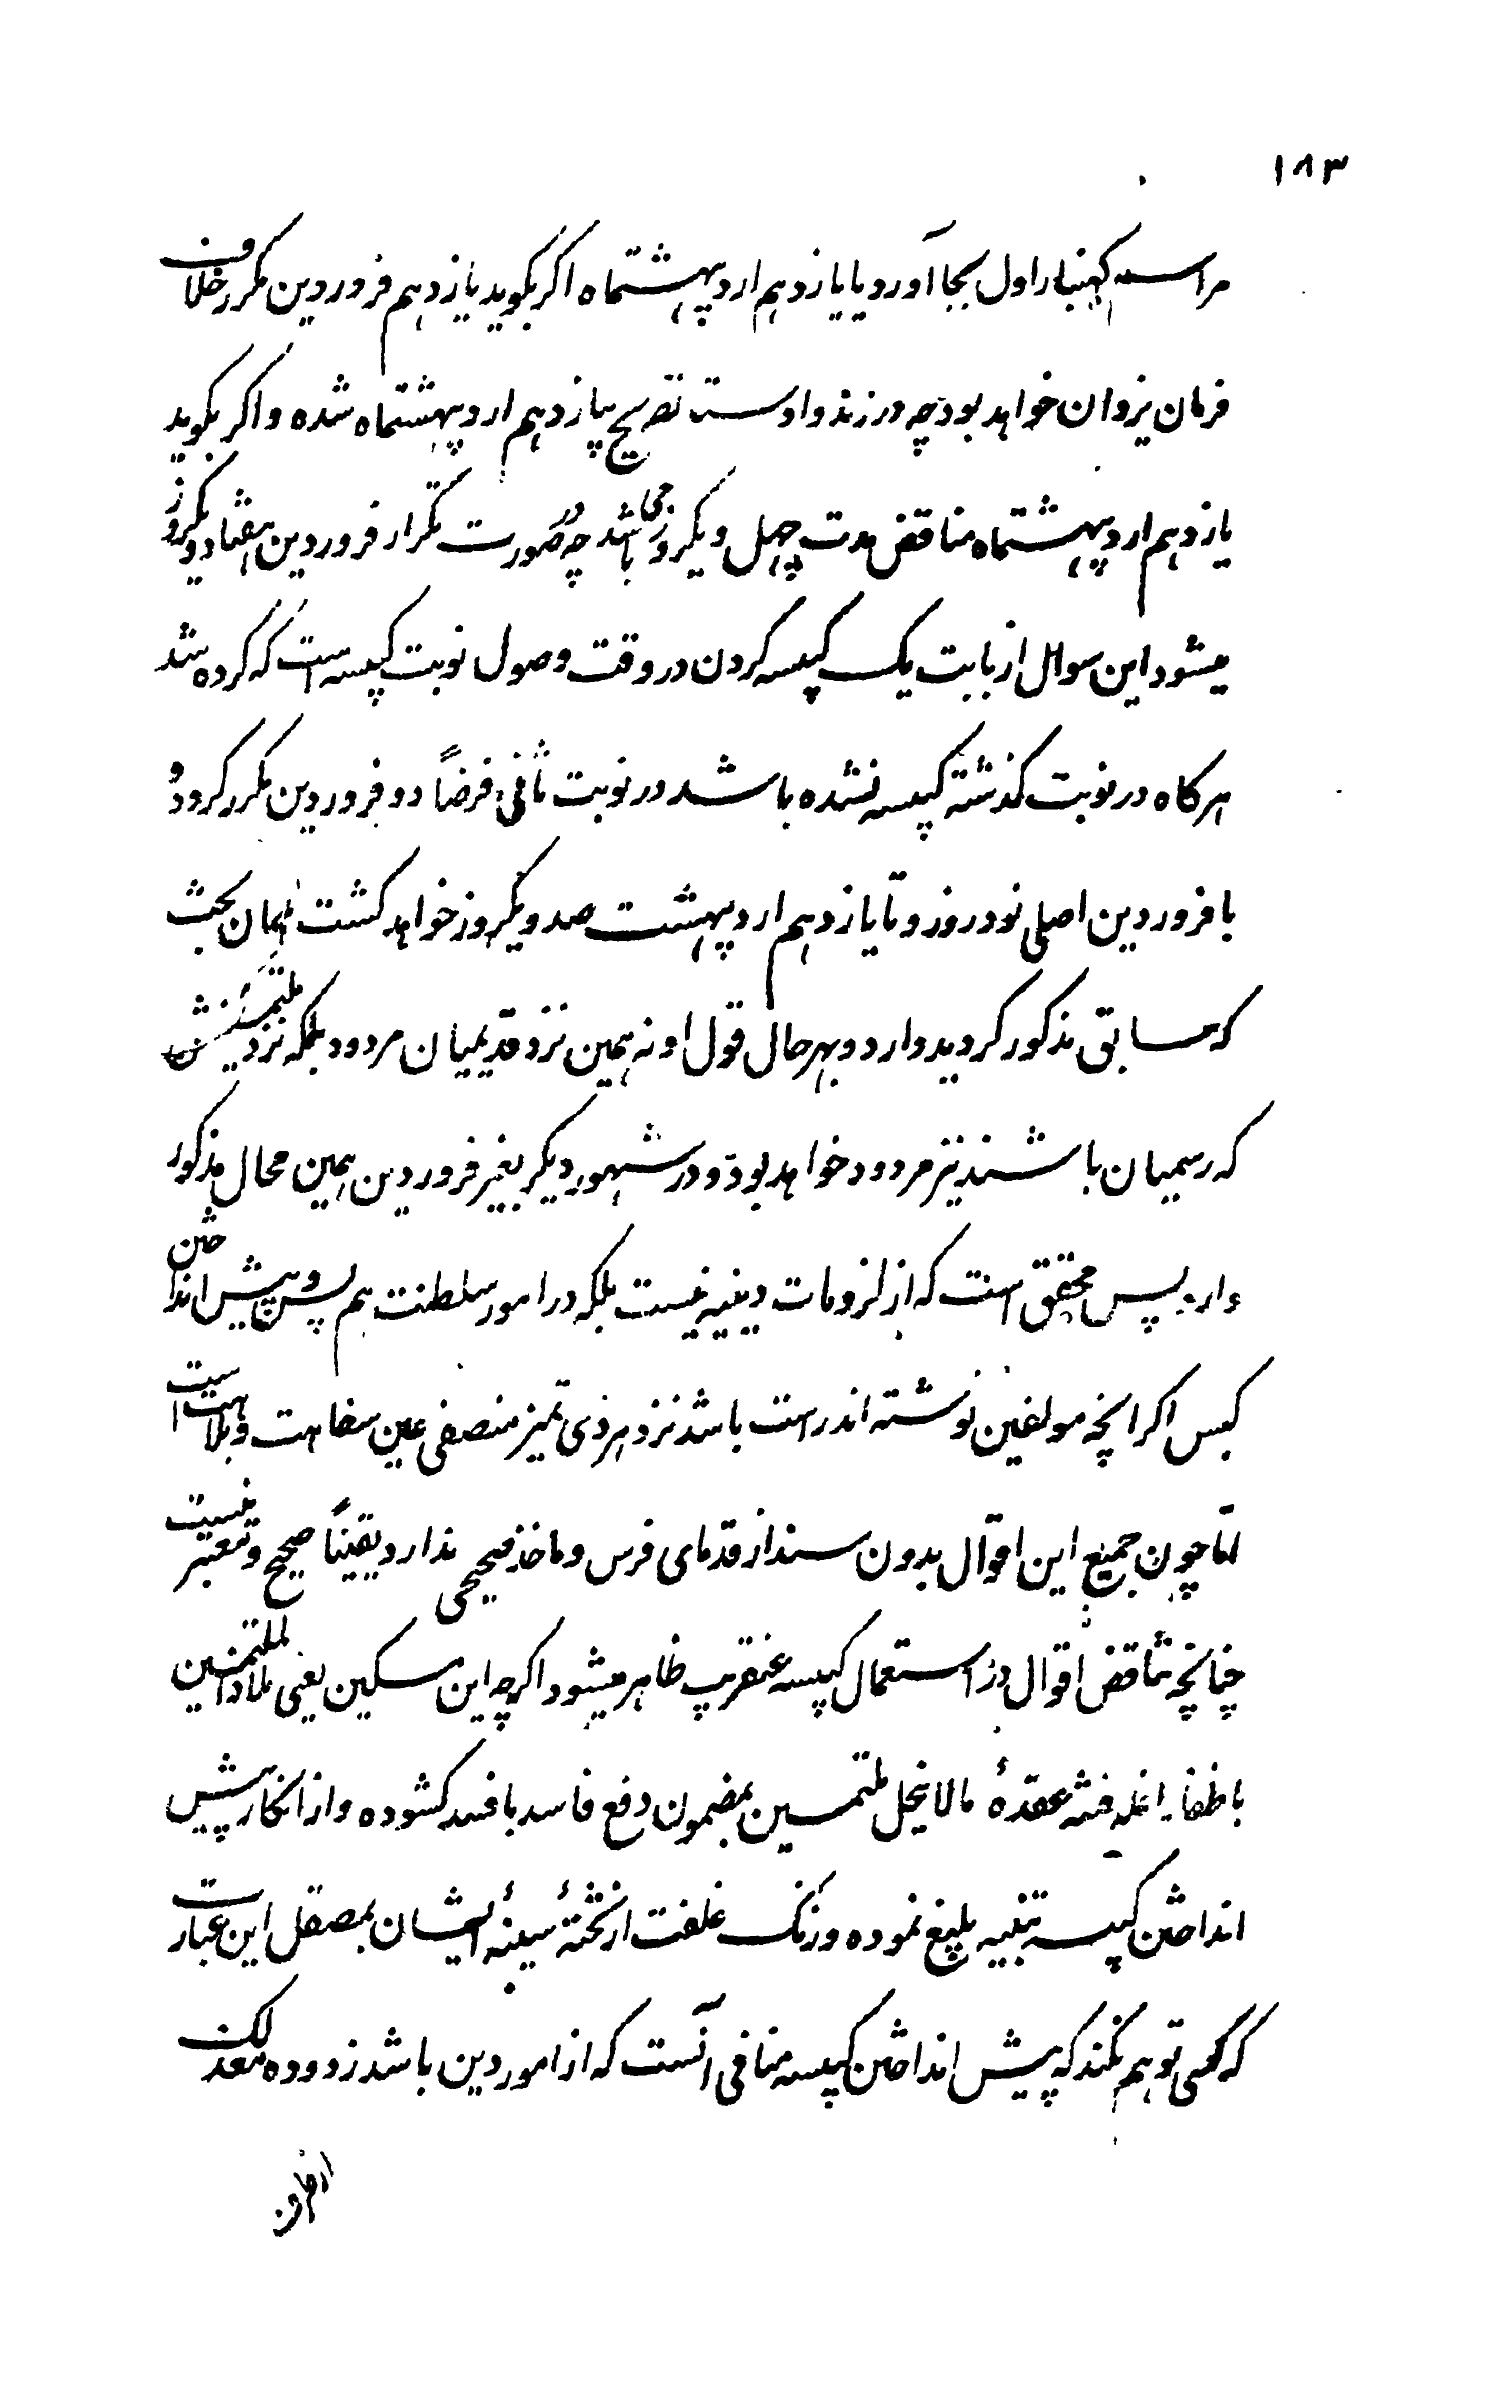 ۱۸۳
مراسم کهنبار اول بجا آورد یا یازدهم اردیبهشتماه اکر بکوید یازدهم فروردین مکرر خلاف
فرمان یزدان خواهد بود چه در زند و اوستا تصریح بیازدهم اردیبهشتماه شده و اکر بکوید
یازدهم اردیبهشتماه مناقض مدت چهل و یکروز می باشد چه در صورت تکرار فروردین هفتاد و یکروز
میشود این سوال از بابت یک کبیسه کردن در وقت وصول نوبت کبیسه است که کرده شد
هرکاه در نوبت کذشته کبیسه نشده باشد در نوبت ثانی فرضاً دو فروردین مکرر کرود و
با فروردین اصلی نود روز و تا یازدهم اردیبهشت صد و یکروز خواهد کشت همان بحث
که سابق مذکور کردید وارد و بهر حال قول او نه همین نزد قدیمیان مردود بلکه نزد ملتمسینش
که رسمیان باشند نیز مردود خواهد بود و در شهور دیکر بغیر فروردین همین محال مذکور
وارد پس محقق است که از لزومات دینیه نیست بلکه در امور سلطنت هم پس و پیش انداختن
کبس اکر آنچه مولفین نوشته اند راست باشد نزد هر ذی تمیز منصفی عین سفاهت و بلاهت است
امّا چون جمیع این اقوال بدون سند از قدمای فرس و ماخذ صحیحی ندارد یقیناً صحیح و معتبر نیست
چنانچه تناقض اقوال در استعمال کبیسه عنقریب ظاهر میشود اکرچه این مسکین یعنی ملاذ الملتمسین
باظفار انمله فتنه عقدهٔ مالاینحل ملتمسین بمضمون دفع فاسد بافسد کشوده و از انکار پیش
انداختن کبیسه تنبیه بلیغ نموده و زنک غلفت از تختهٔ سینهٔ ایشان بمصقل این عبارت
که کسی توهم نکند که پیش انداختن کبیسه منافی آنست که از امور دین باشد زدوده معذلک